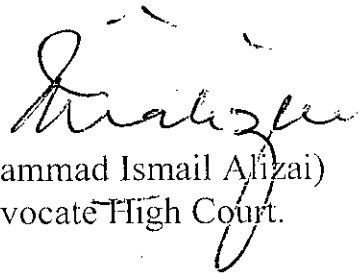 ammad Ismail Alizai)
vocate High Court.